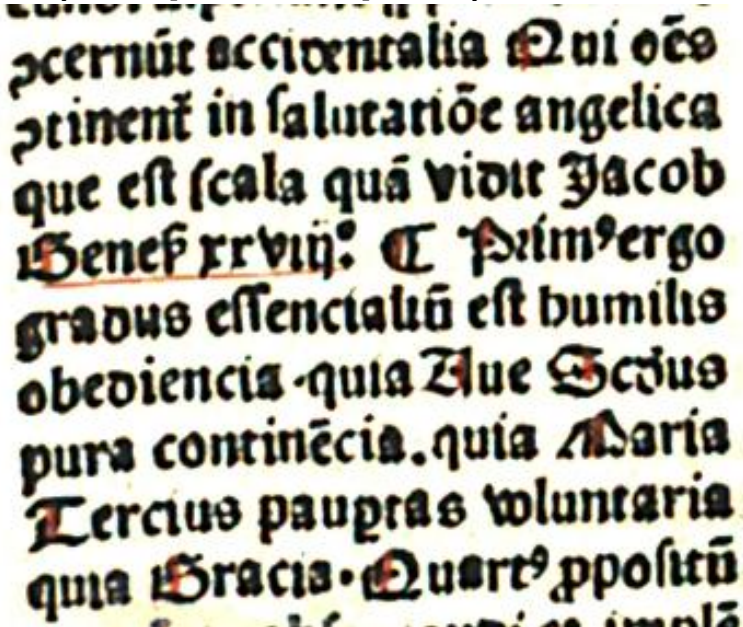 ꝯcernūt accidentalia Qui oēs
ꝯtinent᷑ in ſalutatiōe angelica
que eſt ſcala quā vidit Jacob
Geneſ xxviij°. ¶ Primꝰ ergo
gradus eſſencialiū eſt humilis
obediencia ·quia Aue Scd̓us
pura continēcia. quia Maria
Tercius paup̲tas voluntaria
quia Gracia· Quartꝰ ꝓpoſitū